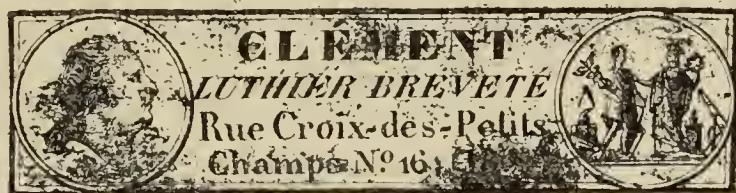 CLÉMENT
LUTHIER BREVETÉ
Rue Croix-des-Petits
Champs N.º 16